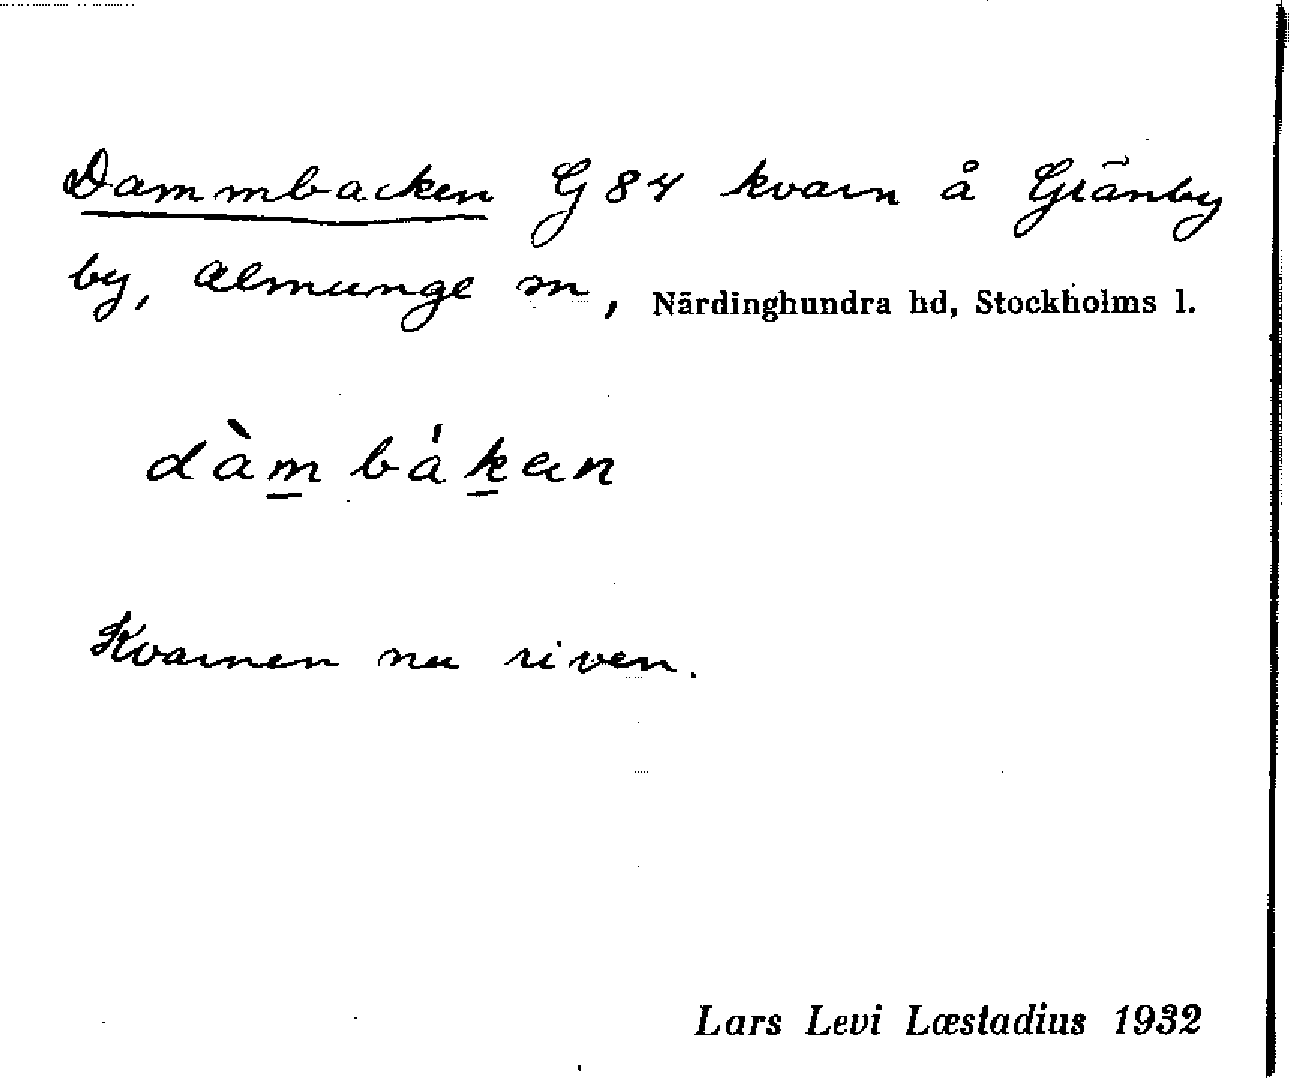 Dammbacken G 84 kvarn å Gränby
by, Almunge sn, Närdinghundra hd, Stockholms l.
dàm bákan
Kvarnen nu riven.
Lars Levi Læstadius 1932